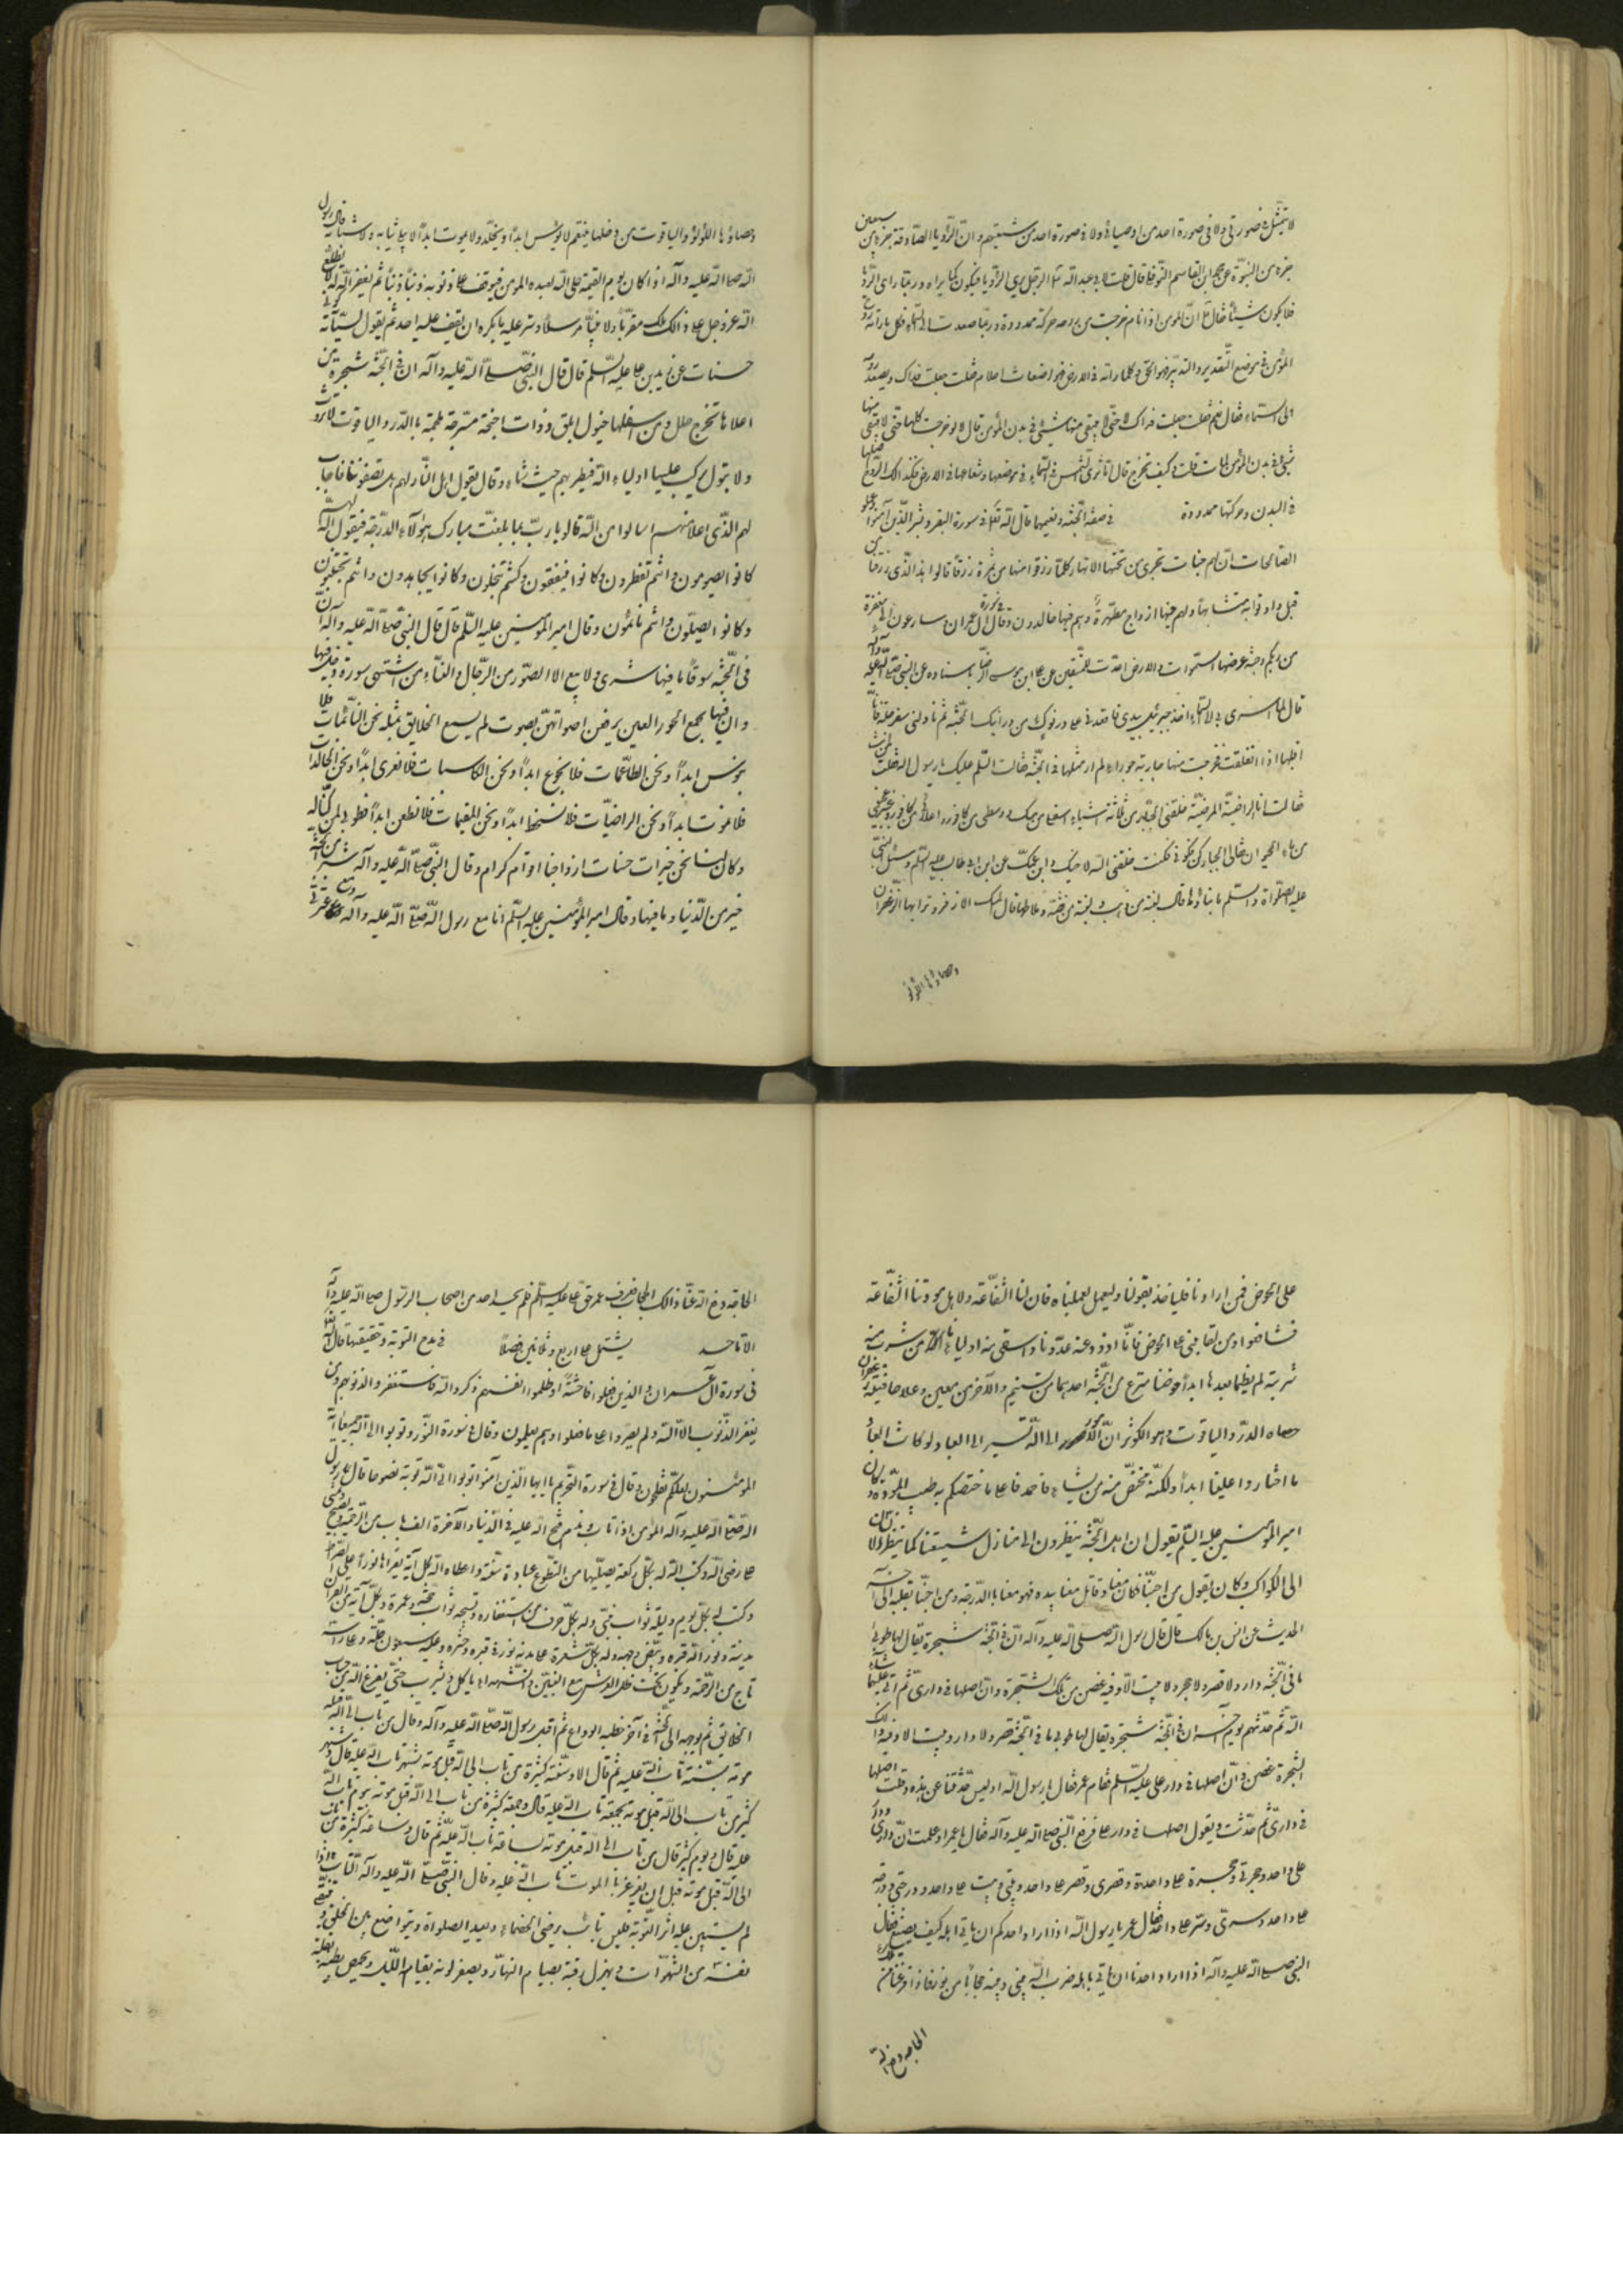 لا يتمثل في صورتي ولا في صورة احد من اوصيائي ولا في صورة احد من شيعتهم وان الرؤيا الصادقة جزء من سبعين
جزء من النبوة عن محمد ابن القاسم النوفلي قال قلت لابي عبد الله الرجل يرى الرؤيا فيكون كما يراه وربما راى الرؤيا
فلا يكون شيئا فقال ان المؤمن اذا نام خرجت من روحه حركة ممدودة صاعدة الى السماء فكل ما راته روح
المؤمن في موضع التقدير والتدبير فهو الحق وكلما راته في الارض فهو اضغاث احلام فقلت جعلت فداك ويصعد روحه
الى السماء فقال نعم قلت جعلت فداك حتى لا يبقى منها شيئ في بدن المؤمن قال لا لو خرجت كلها حتى لا يبقى منها
شيئ في بدن المؤمن لمات قلت وكيف تخرج قال اما ترى الشمس في السماء في موضعها وشعاعها في الارض فكذلك الروح اصلها
في البدن وحركتها ممدودة في صفة الجنة ونعيمها قال الله تعالى في سورة البقر وبشر الذين آمنوا وعملوا
الصالحات ان لهم جنات تجرى من تحتها الانهار كلما رزقوا منها من ثمرة رزقا قالوا هذا الذى رزقنا من
قبل واوتوا به متشابها ولهم فيها ازواج مطهرة وهم فيها خالدون وقال في سورة آل عمران وسارعوا الى مغفرة
من ربكم وجنة عرضها السموات والارض اعدت للمتقين عن علي ابن موسى الرضا باسناده عن النبي صلى الله عليه وآله
قال لما اسرى بي الى السماء اخذ جبرئيل بيدى فاقعدنى على درنوك من درانيك الجنة ثم ناولنى سفرجلة فانا
اقلبها اذا انفلقت فخرجت منها جارية حوراء لم ار مثلها في الجنة فقالت السلم عليك يا رسول الله فقلت لمن انت
فقالت انا الراضية المرضية خلقنى الجبار من ثلاثة اشياء اسفلى من مسك ووسطى من كافور واعلائي من عنبر وعجنى
من ماء الحيوان قال لي الجبار كن فكونى فكنت خلقنى الله لاخيك وابن عمك علي ابن ابي طالب عليه السلم وسئل النبي
عليه الصلواة والسلم ما بناؤها قال لبنة من ذهب ولبنة من فضة وملاطها قال المسك الاذفر وترابها الزعفران
وحصاؤها اللؤلؤ
وحصاؤها اللؤلؤ والياقوت من دخلها ينعم لا يبؤس ابدا ويخلد ولا يموت ابدا لا يبلى ثيابه ولا شبابه قال رسول
الله صلى الله عليه وآله اذا كان يوم القيمة تجلى الله لعبده المؤمن فيوقف على ذنوبه ذنبا ذنبا ثم يغفر الله له لا يطلع
الله عز وجل على ذالك ملك مقربا ولا نبيا مرسلا وستر عليه ما يكره ان يقف عليه احد ثم يقول لسيآته كونى
حسنات عن زيد بن علي عليه السلم قال قال النبي صلى الله عليه وآله ان في الجنة شجرة من
اعلاها تخرج حلل ومن اسفلها خيول ابلق ذوات اجنحة مسرجة ملجمة بالدر والياقوت لا تروث
ولا تبول يركب عليها اولياء الله فيطير بهم حيث شاء وقال يقول اهل النار لهم انصفونا فاجاب
لهم الذى اعلا منهم اسالوا من الله قالوا يا رب بما بلغت مبارك هؤلاء الدرجة فيقول الله لهم
كانوا يصومون وانتم تفطرون وكانوا ينفقون وكنتم تبخلون وكانوا يجاهدون وانتم تجبنون
وكانوا يصلون وانتم نائمون وقال امير المؤمنين عليه السلم قال قال النبي صلى الله عليه وآله ان
في الجنة سوقا ما فيها شرى ولا بيع الا الصور من الرجال والنساء من اشتهى صورة دخل فيها
وان فيها مجمع الحور العين يرفعن اصواتهن بصوت لم يسمع الخلايق بمثله نحن الناعمات فلا
نبؤس ابدا ونحن الطاعمات فلا نجوع ابدا ونحن الكاسيات فلا نعرى ابدا ونحن الخالدات
فلا نموت ابدا ونحن الراضيات فلا نسخط ابدا ونحن المقيمات فلا نظعن ابدا فطوبى لمن كنا له
وكان لنا نحن خيرات حسنات ازواجنا اقوام كرام وقال النبي صلى الله عليه وآله شبر من الجنة
خير من الدنيا وما فيها وقال امير المؤمنين عليه السلم انا مع رسول الله صلى الله عليه وآله ومعى عترتى
على الحوض فمن ارادنا فلياخذ بقولنا وليعمل بعملنا فان لنا الشفاعة ولاهل مودتنا الشفاعة
فتنافسوا في لقائنا على الحوض فانا اذود عنه عدونا واسقى منه اوليائنا من شرب منه
شربة لم يظما بعدها ابدا حوضنا مترع من الجنة احدهما من تسنيم والآخر من معين وعلا حافتيه زعفران
حصاه الدر والياقوت وهو الكوثر ان الامور الى الله تسير لا الى العباد ولو كان الى العباد
ما اختاروا علينا ابدا ولكنه يختص منه من يشاء فاحمدوا الله على ما اختصكم به من طيب المولد وكان
امير المؤمنين عليه السلم يقول ان اهل الجنة ينظرون الى منازل شيعتنا كما ينظر الانسان
الى الكواكب وكان يقول من احبنا فكان معنا وقاتل معنا بيده فهو معنا بالدرجة ومن احبنا بقلبه الى آخر
الحديث عن انس بن مالك قال قال رسول الله صلى الله عليه وآله ان في الجنة شجرة يقال لها طوبى
ما في الجنة دار ولا قصر ولا حجر ولا بيت الا وفيه غصن من تلك الشجرة وان اصلها في دارى ثم اتى عليها ما شاء
الله ثم حدثهم يوم آخر ان في الجنة شجرة يقال لها طوبى ما في الجنة قصر ولا دار ولا بيت الا وفيه من ذلك
الشجرة غصن وان اصلها في دار علي عليه السلم فقام عمر فقال يا رسول الله اوليس حدثتنا عن هذه وقلت اصلها
في دارى ثم حدثت وتقول اصلها في دار علي فرفع النبي صلى الله عليه وآله فقال يا عمر اوما علمت ان دارى ودار
علي واحد وحجرتي وحجرة علي واحدة وقصرى وقصر علي واحد وبيتي وبيت علي واحد ودرجتي ودرجة
علي واحد وسترى وستر علي واحد فقال عمر يا رسول الله اذا اراد احدكم ان ياتي اهله كيف يصنع فقال
النبي صلى الله عليه وآله اذا اراد احدنا ان ياتي باهله ضرب الله بينى وبينه حجابا من نور فاذا فرغنا من تلك
الحاجة رفع الله
الحاجة رفع الله عنا ذالك الحجاب فعرف عمر حق علي عليه السلم فلم يحسد احد من اصحاب الرسول صلى الله عليه وآله
يشتمل على اربع وثمانين فصلا في مدح التوبة وتحقيقتها قال الله تعالى
في سورة آل عمران والذين فعلوا فاحشة او ظلموا انفسهم ذكروا الله فاستغفروا لذنوبهم ومن
يغفر الذنوب الا الله ولم يصروا على ما فعلوا وهم يعلمون وقال في سورة النور وتوبوا الى الله جميعا ايه
المؤمنون لعلكم تفلحون وقال في سورة التحريم يا ايها الذين آمنوا توبوا الى الله توبة نصوحا قال رسول
الله صلى الله عليه وآله المؤمن اذا تاب وندم فتح الله عليه في الدنيا والآخرة الف باب من الرحمة ويصبح ويمسى
على رضى الله وكتب الله له بكل ركعة يصليها من التطوع عبادة سنة واعطاه الله بكل آية يقراها نورا على الصراط
وكتب له بكل يوم وليلة ثواب نبي وله بكل حرف من استغفاره وتسبيحه ثواب حجة وعمرة وبكل آية من القرآن
مدينة ونور الله قبره وبيض وجهه وله بكل شعرة على بدنه نور
تاج من الرحمة ويكون تحت ظل العرش مع النبيين والشهداء ياكل ويشرب حتى يفرغ الله من حساب
الخلائق ثم يوجهه الى الجنة في آخر خطبة الوداع ثم اقبل رسول الله صلى الله عليه وآله وقال من تاب الى الله قبل
موته بسنة تاب الله عليه ثم قال الا وسنة كثيرة من تاب الى الله قبل موته بشهر تاب الله عليه قال وشهر
كثير من تاب الى الله قبل موته بجمعة تاب الله عليه قال وجمعة كثيرة من تاب الى الله قبل موته بيوم تاب الله
عليه قال ويوم كثير قال من تاب الى الله قبل موته بساعة تاب الله عليه ثم قال وساعة كثيرة من تاب
الى الله قبل موته قبل ان يغرغر بالموت تاب الله عليه وقال النبي صلى الله عليه وآله التائب اذا
لم يستبين عليه اثر التوبة فليس بتائب يرضى الخصماء ويعيد الصلواة ويتواضع بين الخلق ويتقى
نفسه من الشهوات ويهزل رقبته بصيام النهار ويصفر لونه بقيام الليل ويخمص بطنه بقلة